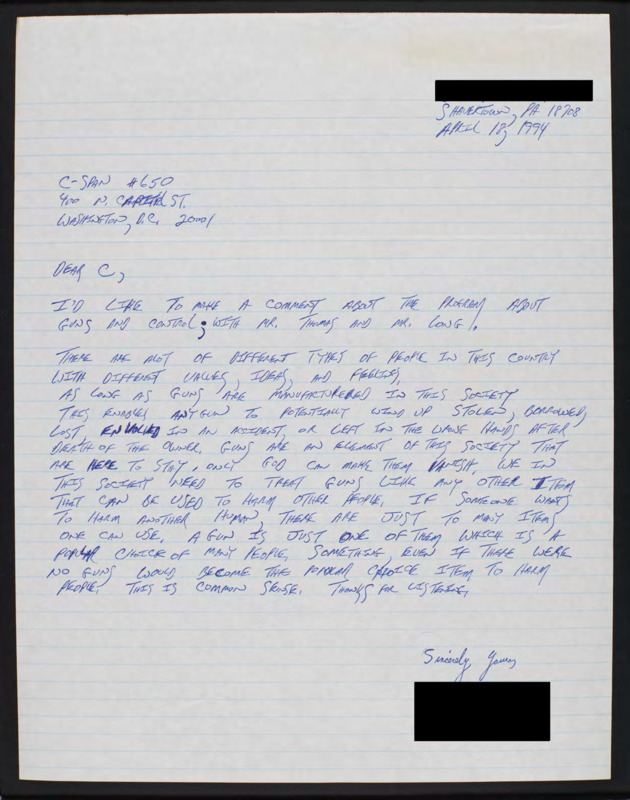 SHAVERTOWN, PA 18708
APRIL 18, 1994
C-SPAN #650
400 N. CAPITAL ST.
WASHINGTON, D.C. 20001
DEAR C,
I'D LIKE TO MAKE A COMMENT ABOUT THE PROGRAM ABOUT
GUNS AND CONTROL; WITH MR. THOMAS AND MR. LONG.
THERE ARE ALOT OF DIFFERENT TYPES OF PEOPLE IN THIS COUNTRY
WITH DIFFERENT VALUES, IDEAS, AND FEELINGS,
AS LONG AS GUNS ARE MANUFACTURERED IN THIS SOCIETY
THIS ENABLES ANY GUN TO POTENTIALLY WIND UP STOLEN, BORROWED,
LOST, ENVOLVED IN AN ACCIDENT, OR LEFT IN THE WRONG HANDS AFTER
DEATH OF THE OWNER. GUNS ARE AN ELEMENT OF THIS SOCIETY THAT
ARE HERE TO STAY. ONLY GOD CAN MAKE THEM VANISH. WE IN
THIS SOCIETY NEED TO TREAT GUNS LIKE ANY OTHER ITEM
THAT CAN BE USED TO HARM OTHER PEOPLE. IF SOMEONE WANTS
TO HARM ANOTHER HUMAN, THERE ARE JUST TO MANY ITEMS
ONE CAN USE. A GUN IS JUST ONE OF THEM WHICH IS A
POPULAR CHOICE OF MANY PEOPLE. SOMETHING, EVEN IF THERE WERE
NO GUNS WOULD BECOME THE POPULAR CHOICE ITEM TO HARM
PEOPLE. THIS IS COMMON SENSE. THANKS FOR LISTENING.
Sincerely Yours